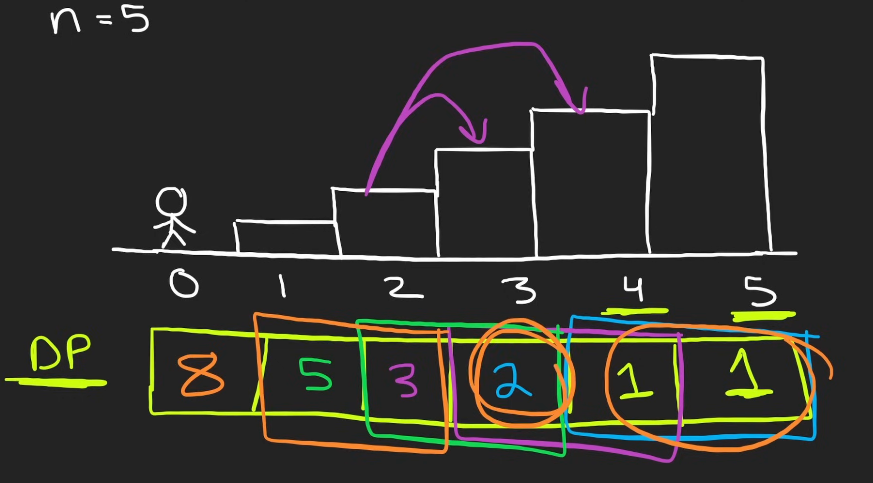 n = 5
0 1 2 3 4 5
DP 8 5 3 2 1 1